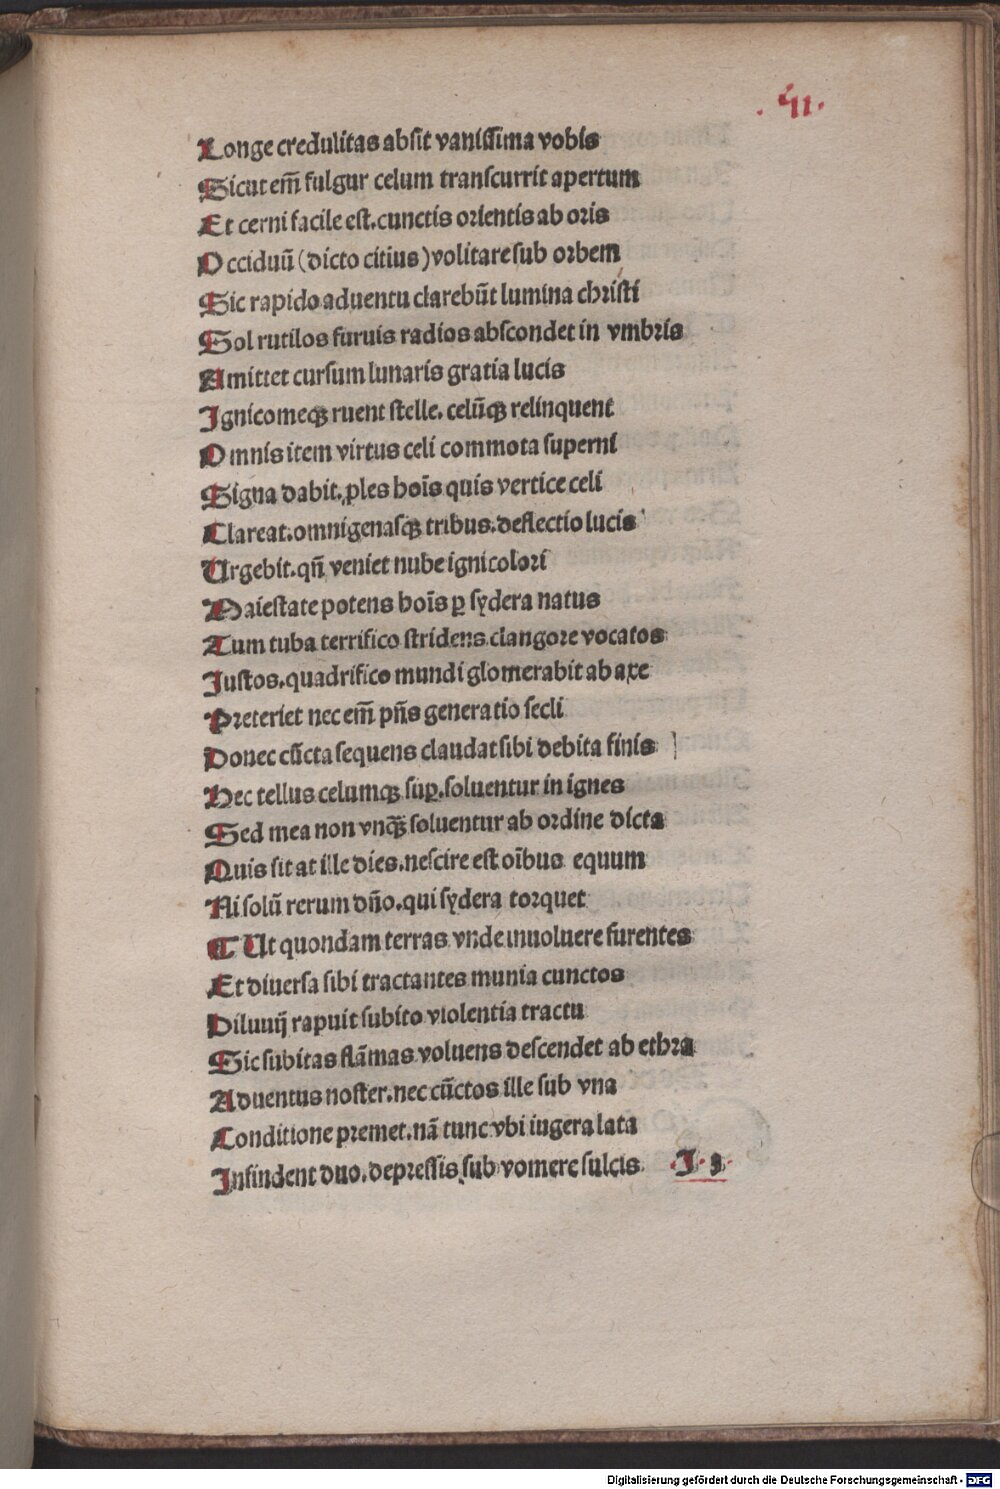 .41.
Longe credulitas absit vanissima vobis
Sicut em̄ fulgur celum transcurrit apertum
Et cerni facile est.cunctis orientis ab oris
Occiduū (dicto citius) volitare sub orbem
Sic rapido aduentu clarebūt lumina christi
Sol rutilos furuis radios abscondet in vmbris
Amittet cursum lunaris gratia lucis
Ignicomeqꝫ ruent stelle. celūqꝫ relinquent
Omnis item virtus celi commota superni
Signa dabit.ꝓles hoīs quis vertice celi
Clareat.omnigenasqꝫ tribus.deflectio lucis
Urgebit.qn̄ veniet nube ignicolori
Maiestate potens hoīs ꝑ sydera natus
Tum tuba terrifico stridens clangore vocatos
Iustos.quadrifico mundi glomerabit ab axe
Preteriet nec em̄ pn̄s generatio secli
Donec cūcta sequens claudat sibi debita finis
Hec tellus celumqꝫ suꝑ.soluentur in ignes
Sed mea non vnqꝫ̄ soluentur ab ordine dicta
Quis sit at ille dies.nescire est oībus equum
Ni solū rerum dn̄o.qui sydera torquet
¶ Ut quondam terras vnde inuoluere furentes
Et diuersa sibi tractantes munia cunctos
Diluuij rapuit subito violentia tractu
Sic subitas flāmas voluens descendet ab ethra
Aduentus noster.nec cūctos ille sub vna
Conditione premet.nā tunc vbi iugera lata
Infindent duo.depressis sub vomere sulcis
I.
Digitalisierung gefördert durch die Deutsche Forschungsgemeinschaft - DFG